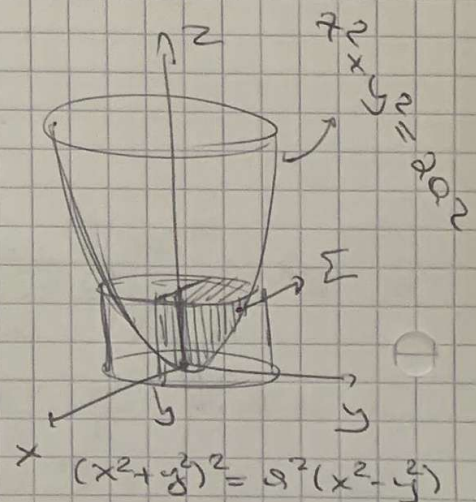 z
x² + y² = 2az
Σ
y
x
(x²+y²)² = a²(x²-y²)